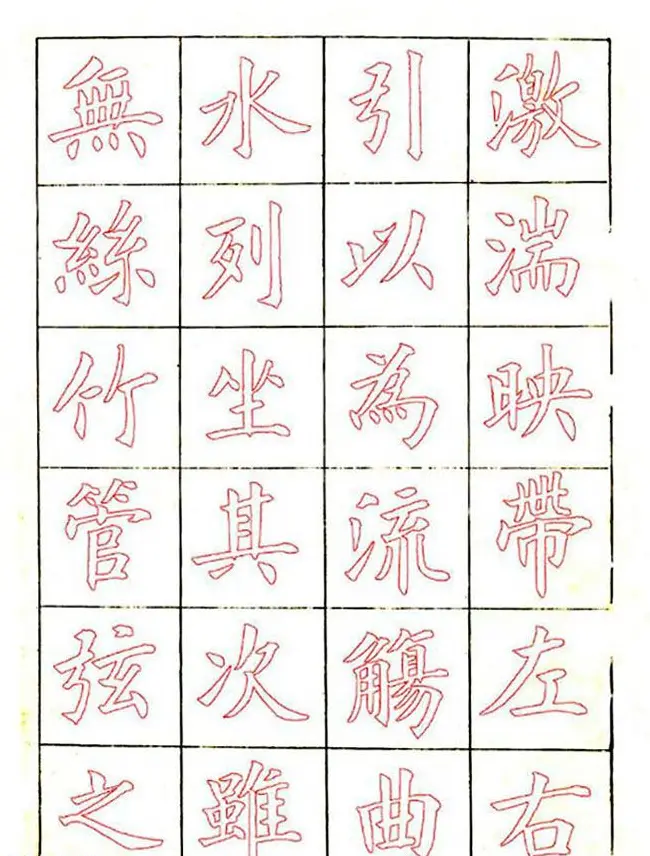 激湍映帶左右
引以為流觴曲
水列坐其次雖
無絲竹管弦之